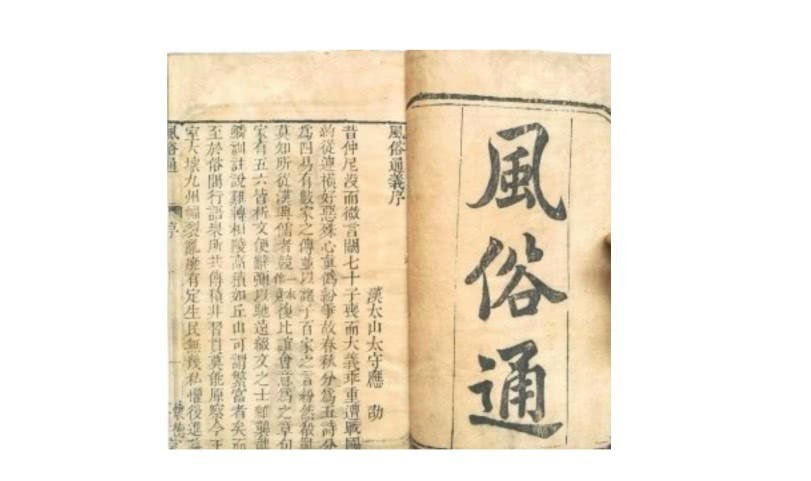 風俗通
風俗通義序
漢太山太守應劭
昔仲尼沒而微言闕七十子喪而大義乖重遭戰國
約從連橫好惡殊心真僞紛爭故春秋分爲五詩分
爲四易有數家之傳並以諸子百家之言紛然殽亂
莫知所從漢興儒者競復比誼會意爲之章句
家有五六皆析文便辭彌以馳遠綴文之士雜襲龍
鱗訓註說難轉相陵高積如丘山可謂繁富者矣而
至於俗間行語衆所共傳積非習貫莫能原察今王
室大壞九州幅裂亂靡有定生民無幾私懼後進
風俗通
序